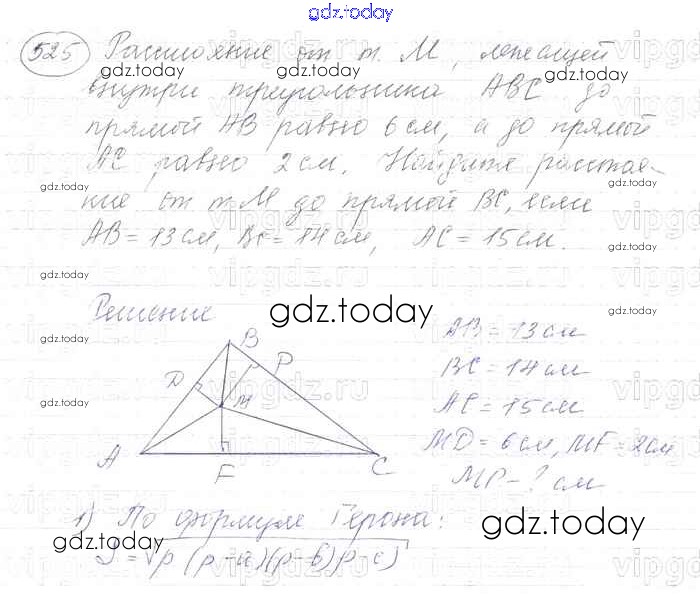 gdz.today
525 Расстояние от т. М, лежащей
gdz.today gdz.today gdz.today
внутри треугольника ABC до
прямой AB равно 6 см, а до прямой
AC равно 2 см. Найдите расстоя-
gdz.today gdz.today
ние от т. М до прямой BC, если
AB = 13 см, BC = 14 см, AC = 15 см.
gdz.today gdz.today
Решение gdz.today
gdz.today
B
D P
M
A F C
AB = 13 см
BC = 14 см
AC = 15 см
MD = 6 см, MF = 2 см
MP - ? см
gdz.today
gdz.today
1) По формуле Герона:
gdz.today gdz.today
S = √p(p-a)(p-b)(p-c)
gdz.today